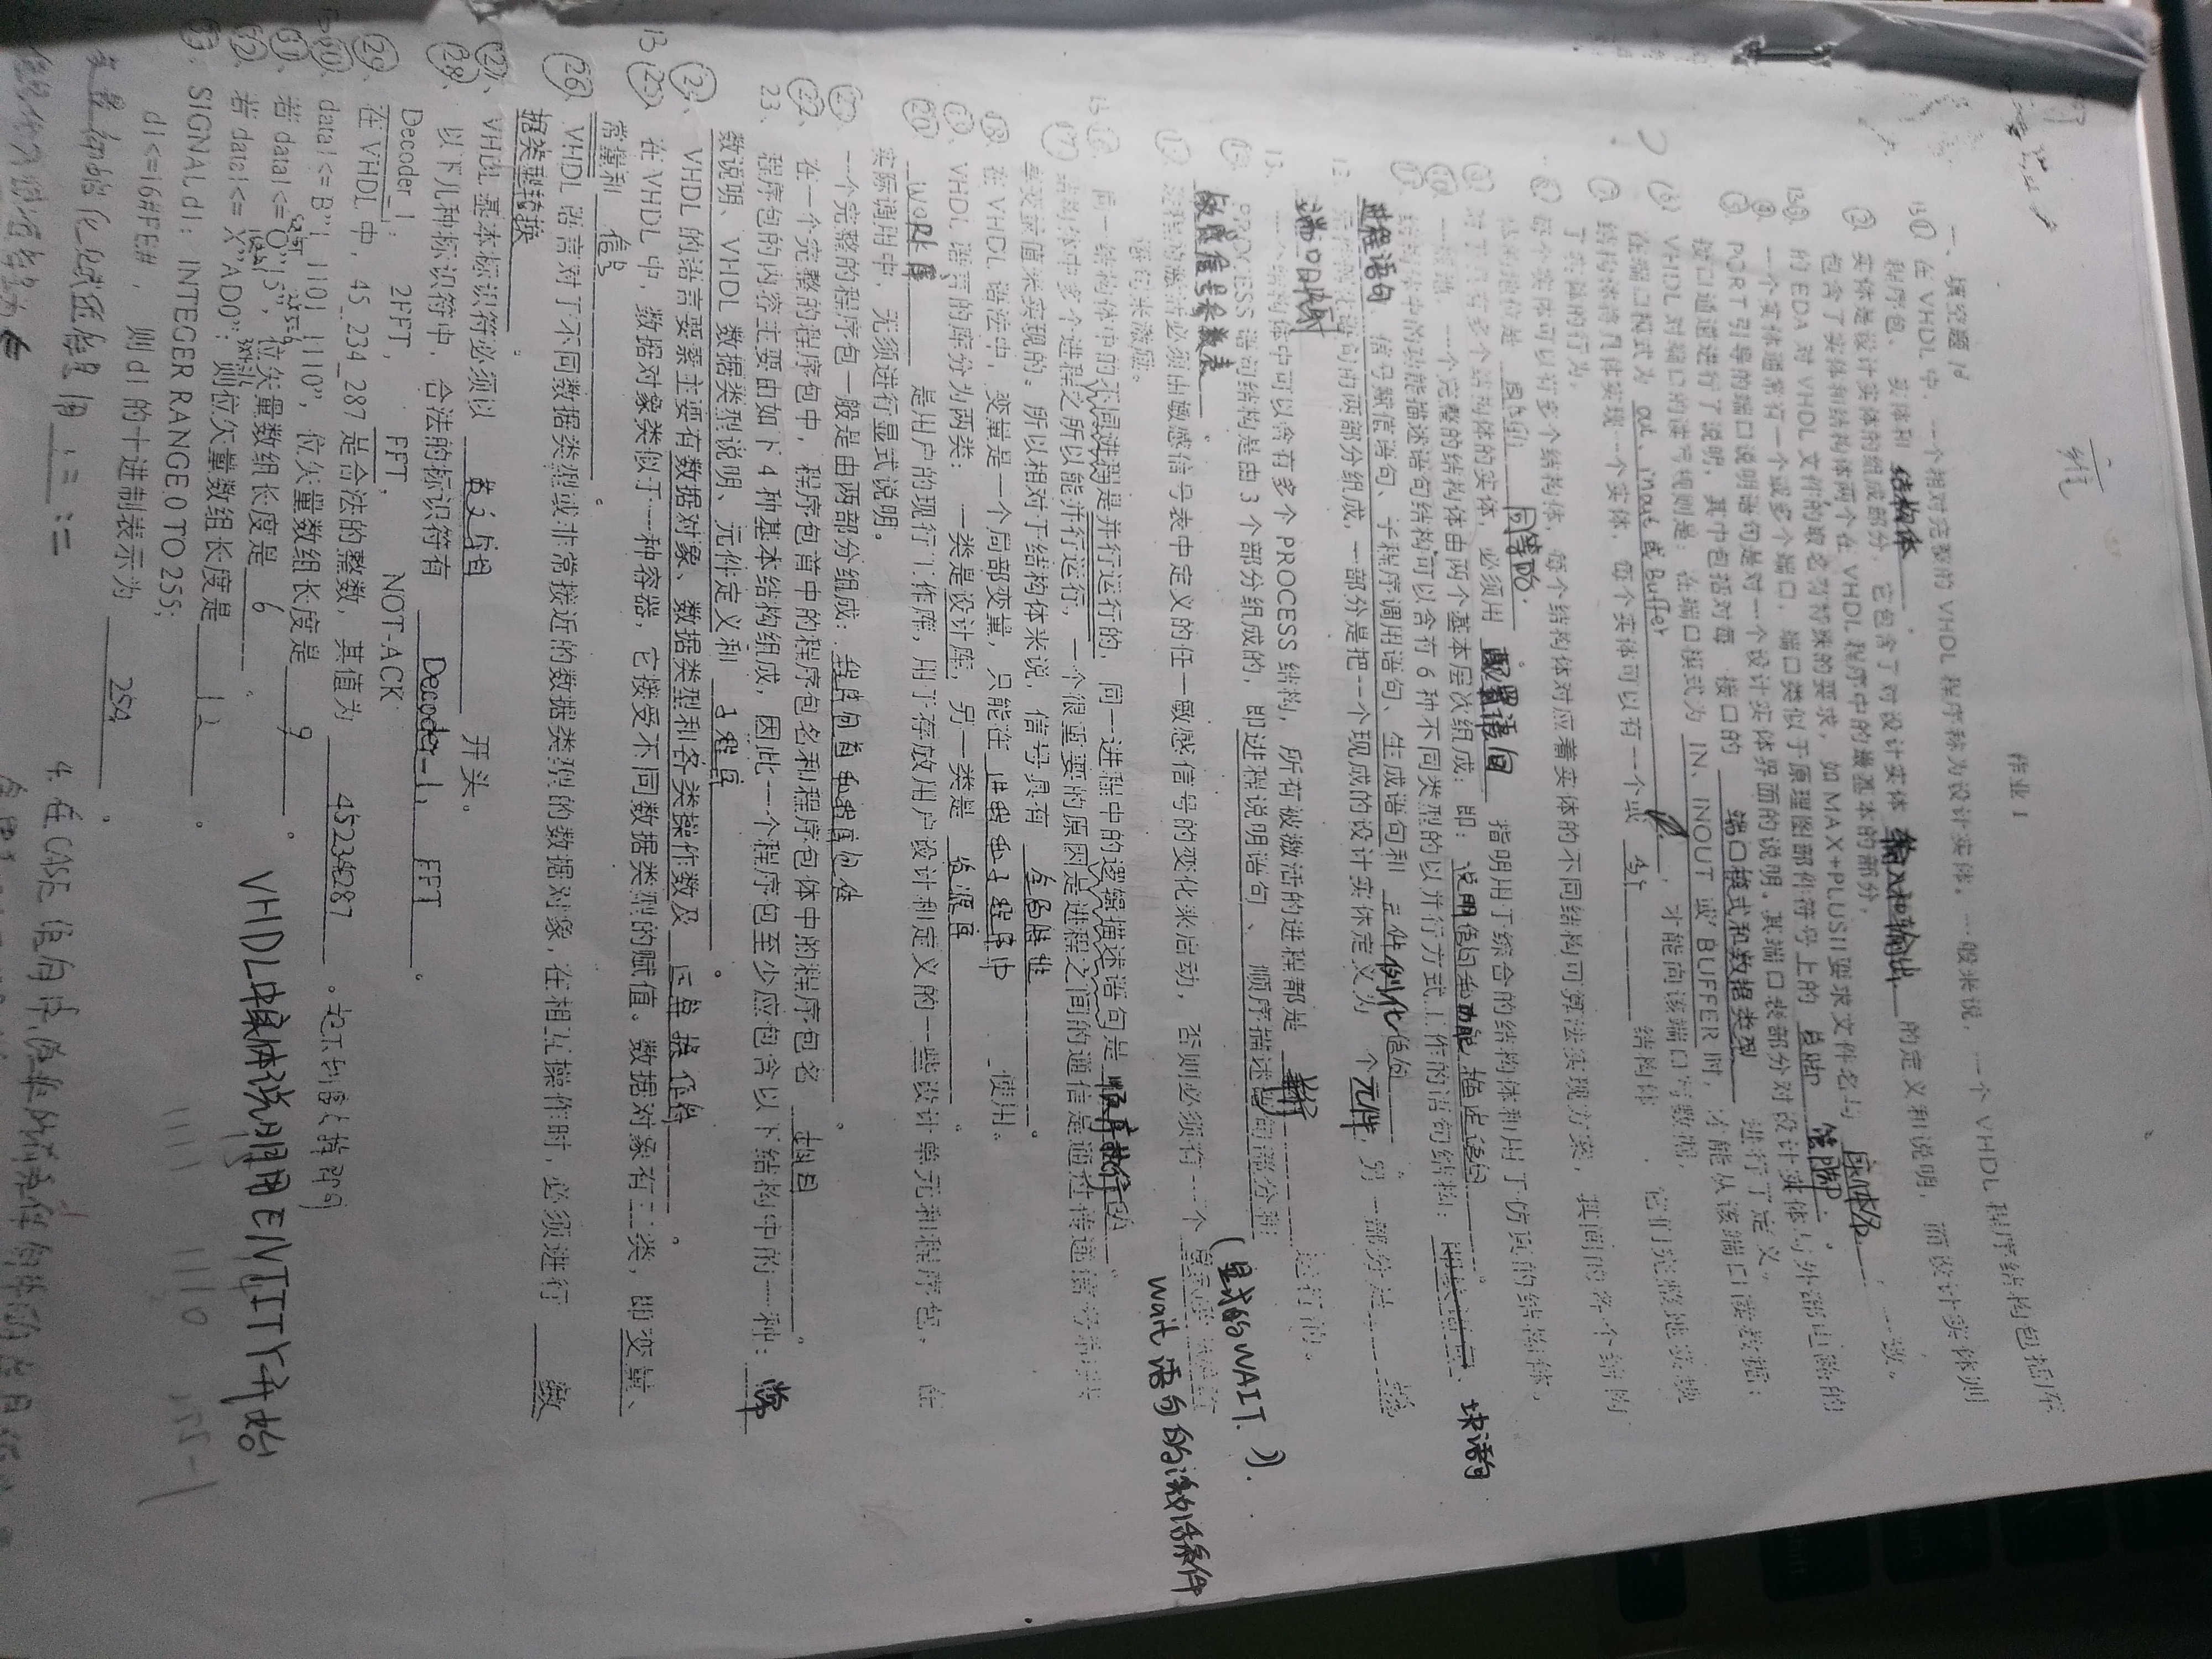 雍
作业 1
一、填空题 1d
13① 在 VHDL 中，一个相对完整的 VHDL 程序称为设计实体。一般来说，一个 VHDL 程序结构包括库
程序包、实体和 结构体 。
② 实体是设计实体的组成部分，它包含了对设计实体 输入和输出 的定义和说明，而设计实体则
包含了实体和结构体两个在 VHDL 程序中的最基本的部分，
13③ 的 EDA 对 VHDL 文件的取名有特殊的要求，如 MAX+PLUSII 要求文件名与 实体名 一致。
④ 一个实体通常有一个或多个端口，端口类似于原理图部件符号上的 管脚 。
⑤ PORT 引导的端口说明语句是对一个设计实体界面的说明。其端口表部分对设计实体与外部电路的
接口通道进行了说明，其中包括对每 接口的 端口模式和数据类型 进行了定义。
⑥ VHDL 对端口的读写规则是：在端口模式为 IN、INOUT 或 BUFFER 时，才能从该端口读数据；
在端口模式为 out、inout 或 Buffer ，才能向该端口写数据。
⑦ 结构体将具体实现一个实体，每个实体可以有一个或 多个 结构体 ，它们完整地实现
了实体的行为。
⑧ 每个实体可以有多个结构体，每个结构体对应着实体的不同结构可算法实现方案，其间的各个结构
体的地位是 同等的 。
⑨ 对于具有多个结构体的实体，必须用 配置语句 指明用于综合的结构体和用于仿真的结构体。
⑩ 一般地，一个完整的结构体由两个基本层次组成：即：说明语句和功能描述语句
⑪ 结构体中的功能描述语句结构可以含有 6 种不同类型的以并行方式工作的语句结构： 块语句
进程语句、信号赋值语句、子程序调用语句、生成语句和 元件例化语句 。
12、元件例化语句由两部分组成，一部分是把一个现成的设计实体定义为 个元件，另一部分是
端口映射
13、一个结构体中可以含有多个 PROCESS 结构，所有被激活的进程都是 并行 运行的。
⑭ PROCESS 语句结构是由 3 个部分组成的，即进程说明语句 、 顺序描述语句部分和
敏感信号参数表 。 (显式的WAIT.)
⑮ 进程的激活必须由敏感信号表中定义的任一敏感信号的变化来启动，否则必须有一个 显式的 WAIT
语句来激励。 wait 语句的激活条件
13⑯ 同一结构体中的不同进程是并行运行的，同一进程中的逻辑描述语句是 顺序执行的 。
⑰ 结构体中多个进程之所以能并行运行，一个很重要的原因是进程之间的通信是通过传递信号和共
享变量值来实现的。所以相对于结构体来说，信号具有 全局特性 。
⑱ 在 VHDL 语法中，变量是一个局部变量，只能在 进程和子程序中 使用。
⑲ VHDL 语言的库分为两类： 一类是设计库，另一类是 资源库 。
⑳ WORK库 是用户的现行工作库，用于存放用户设计和定义的一些设计单元和程序包， 在
实际调用中，无须进行显式说明。
㉑ 一个完整的程序包一般是由两部分组成：程序包首和程序包体 。
㉒ 在一个完整的程序包中，程序包首中的程序包名和程序包体中的程序包名 相同 。
23、程序包的内容主要由如下 4 种基本结构组成，因此一个程序包至少应包含以下结构中的一种： 常
数说明、VHDL 数据类型说明、元件定义和 子程序 。
㉔、 VHDL 的语言要素主要有数据对象、数据类型和各类操作数及 运算操作符 。
13㉕、在 VHDL 中，数据对象类似于一种容器，它接受不同数据类型的赋值。数据对象有三类，即变量、
常量和 信号 。
㉖、VHDL 语言对于不同数据类型或非常接近的数据类型的数据对象，在相互操作时，必须进行 数
据类型转换 。
㉗、VHDL 基本标识符必须以 英文字母 开头。
㉘、以下几种标识符中，合法的标识符有 Decoder_1， FFT 。
Decoder_1， 2FFT， FFT， NOT-ACK
㉙、在 VHDL 中，45_234_287 是合法的整数，其值为 45234287 。
㉚、data1<= B"1_1101_1110"，位矢量数组长度是 9 。
㉛、若 data1<= O"15"，位矢量数组长度是 6 。
㉜、若 data1<= X"AD0"；则位矢量数组长度是 12 。
VHDL中实体说明用ENTITY开始
㉝、SIGNAL d1：INTEGER RANGE 0 TO 255;
1111 1110 255-1
d1<=16#FE# ， 则 d1 的十进制表示为 254 。
变量初始化赋值符是用 := :=